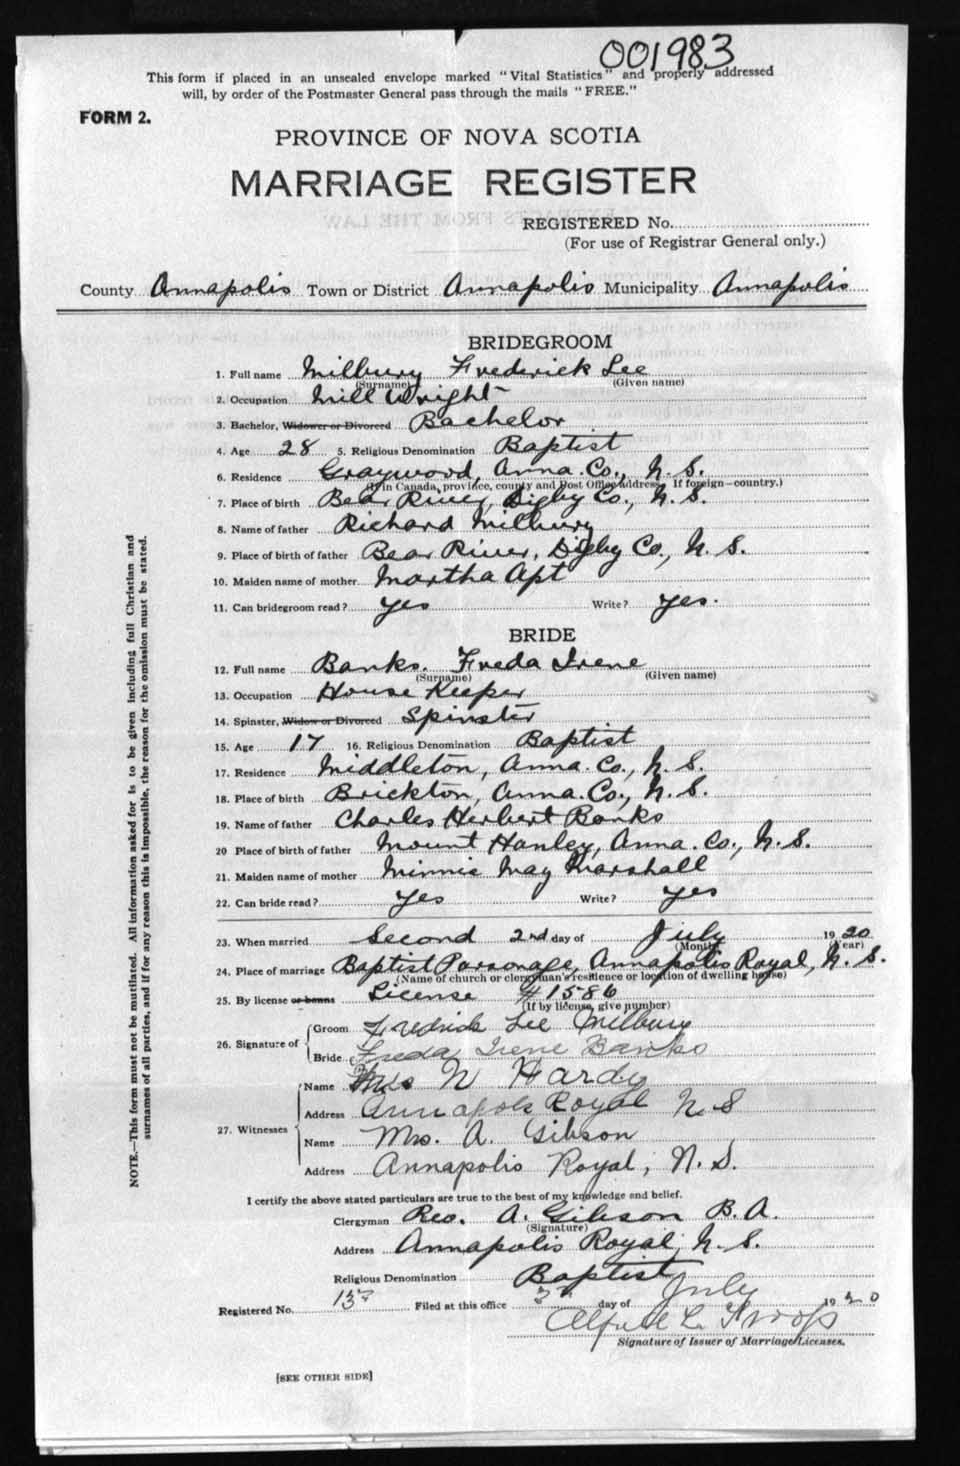 001983
This form if placed in an unsealed envelope marked "Vital Statistics" and properly addressed
will, by order of the Postmaster General pass through the mails "FREE."
FORM 2.
PROVINCE OF NOVA SCOTIA
MARRIAGE REGISTER
REGISTERED No.
(For use of Registrar General only.)
County Annapolis Town or District Annapolis Municipality Annapolis
BRIDEGROOM
1. Full name Milbury Frederick Lee
(Surname) (Given name)
2. Occupation Mill Wright
3. Bachelor, Widower or Divorced Bachelor
4. Age 28 5. Religious Denomination Baptist
6. Residence Graywood, Anna. Co., N. S.
(If in Canada, province, county and Post Office address. If foreign—country.)
7. Place of birth Bear River, Digby Co., N. S.
8. Name of father Richard Milbury
9. Place of birth of father Bear River, Digby Co., N. S.
10. Maiden name of mother Martha Apt
11. Can bridegroom read? yes Write? yes.
BRIDE
12. Full name Banks. Freda Irene
(Surname) (Given name)
13. Occupation House Keeper
14. Spinster, Widow or Divorced Spinster
15. Age 17 16. Religious Denomination Baptist
17. Residence Middleton, Anna. Co., N. S.
18. Place of birth Brickton, Anna. Co., N. S.
19. Name of father Charles Herbert Banks
20 Place of birth of father Mount Hanley, Anna. Co., N. S.
21. Maiden name of mother Minnie May Marshall
22. Can bride read? yes Write? yes
23. When married Second 2nd day of July 1920
(Month) (Year)
24. Place of marriage Baptist Parsonage, Annapolis Royal, N. S.
(Name of church or clergyman's residence or location of dwelling house)
25. By license or banns License #1586
(If by license, give number)
26. Signature of
Groom Fredrick Lee Milbury
Bride Freda Irene Banks
27. Witnesses
Name Mrs N Hardy
Address Annapols Royal N S
Name Mrs. A. Gibson
Address Annapolis Royal, N. S.
I certify the above stated particulars are true to the best of my knowledge and belief.
Clergyman Rev. A. Gibson B. A.
(Signature)
Address Annapolis Royal, N. S.
Religious Denomination Baptist
Registered No. Filed at this office day of July 1920
Alfred L.
Signature of Issuer of Marriage Licenses.
[SEE OTHER SIDE]
NOTE.—This form must not be mutilated. All information asked for is to be given including full Christian and
surnames of all parties, and if for any reason this is impossible, the reason for the omission must be stated.